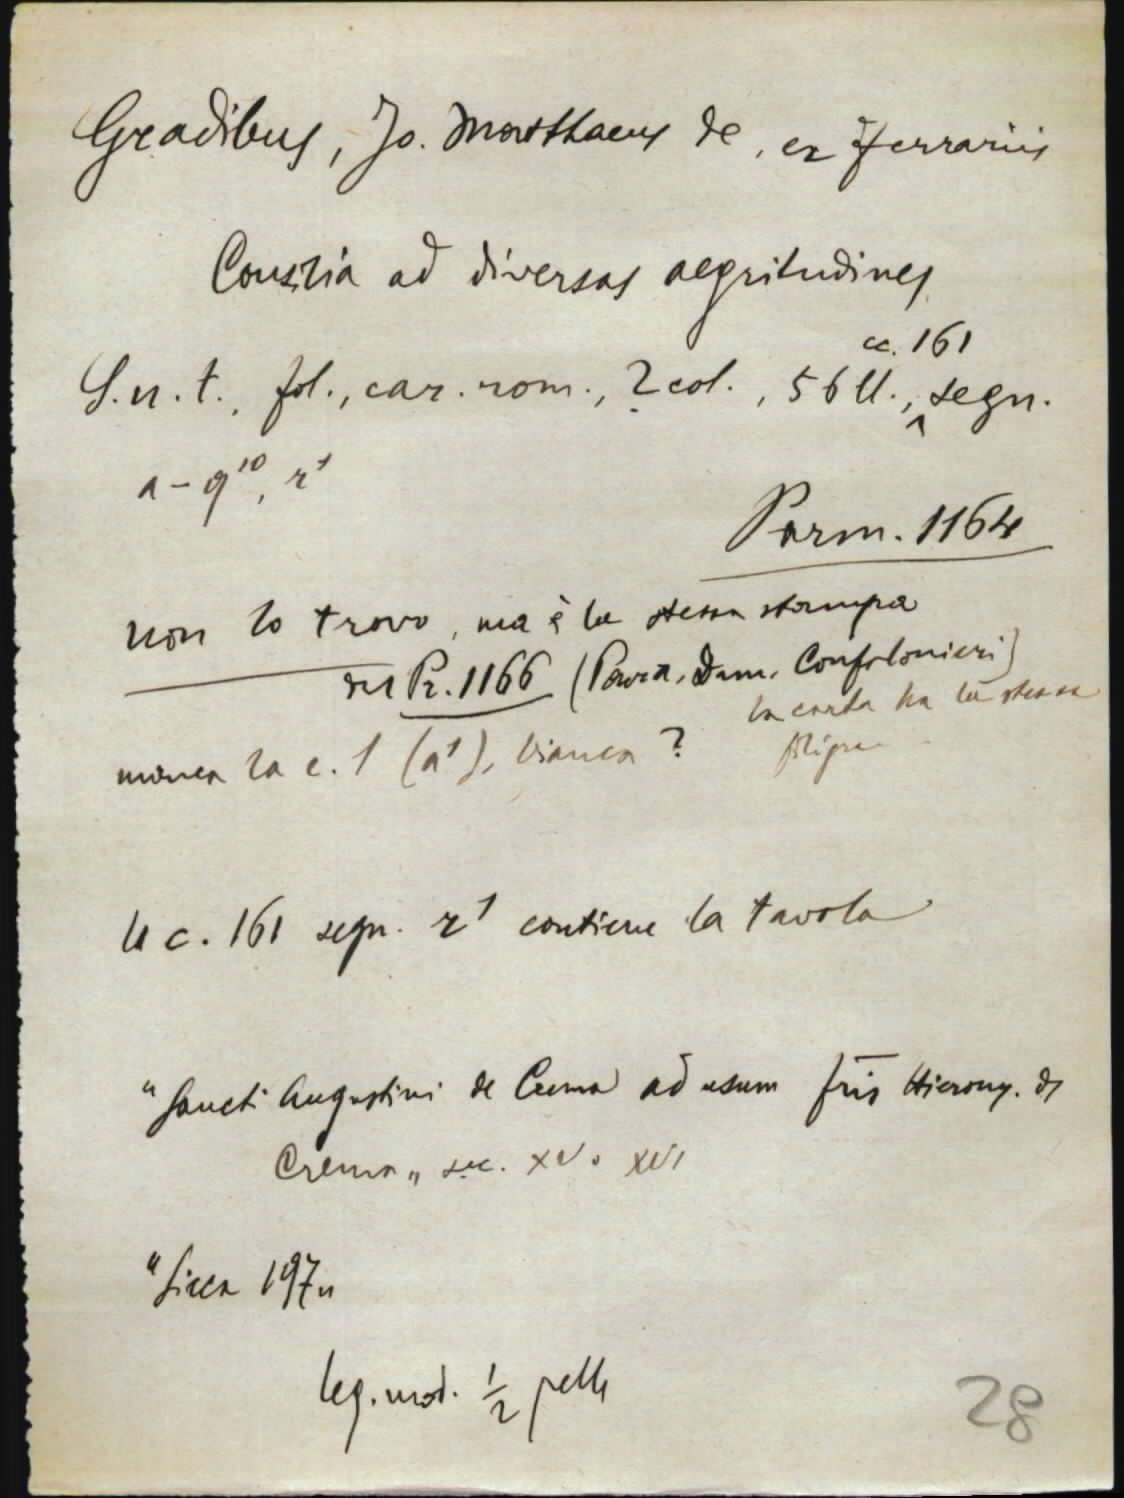 Gradibus, Jo. Matthaeus de, ex Ferrariis
Consilia ad diversas aegritudines
cc. 161
S.n.t., fol., car. rom., 2 col., 56 ll., segn.
a-q¹⁰, r¹
Parm. 1164
non lo trovo, ma è la stessa stampa
del Pr. 1166 (Pavia, Dam. Confalonieri)
la carta ha la stessa
manca la c. 1 (a¹), bianca?
la c. 161 segn. r¹ contiene la tavola
"Sancti Augustini de Crema ad usum fris Hierony. de
Crema" sec. XV o XVI
"Sicca 197"
leg. mod. ½ pelle
28